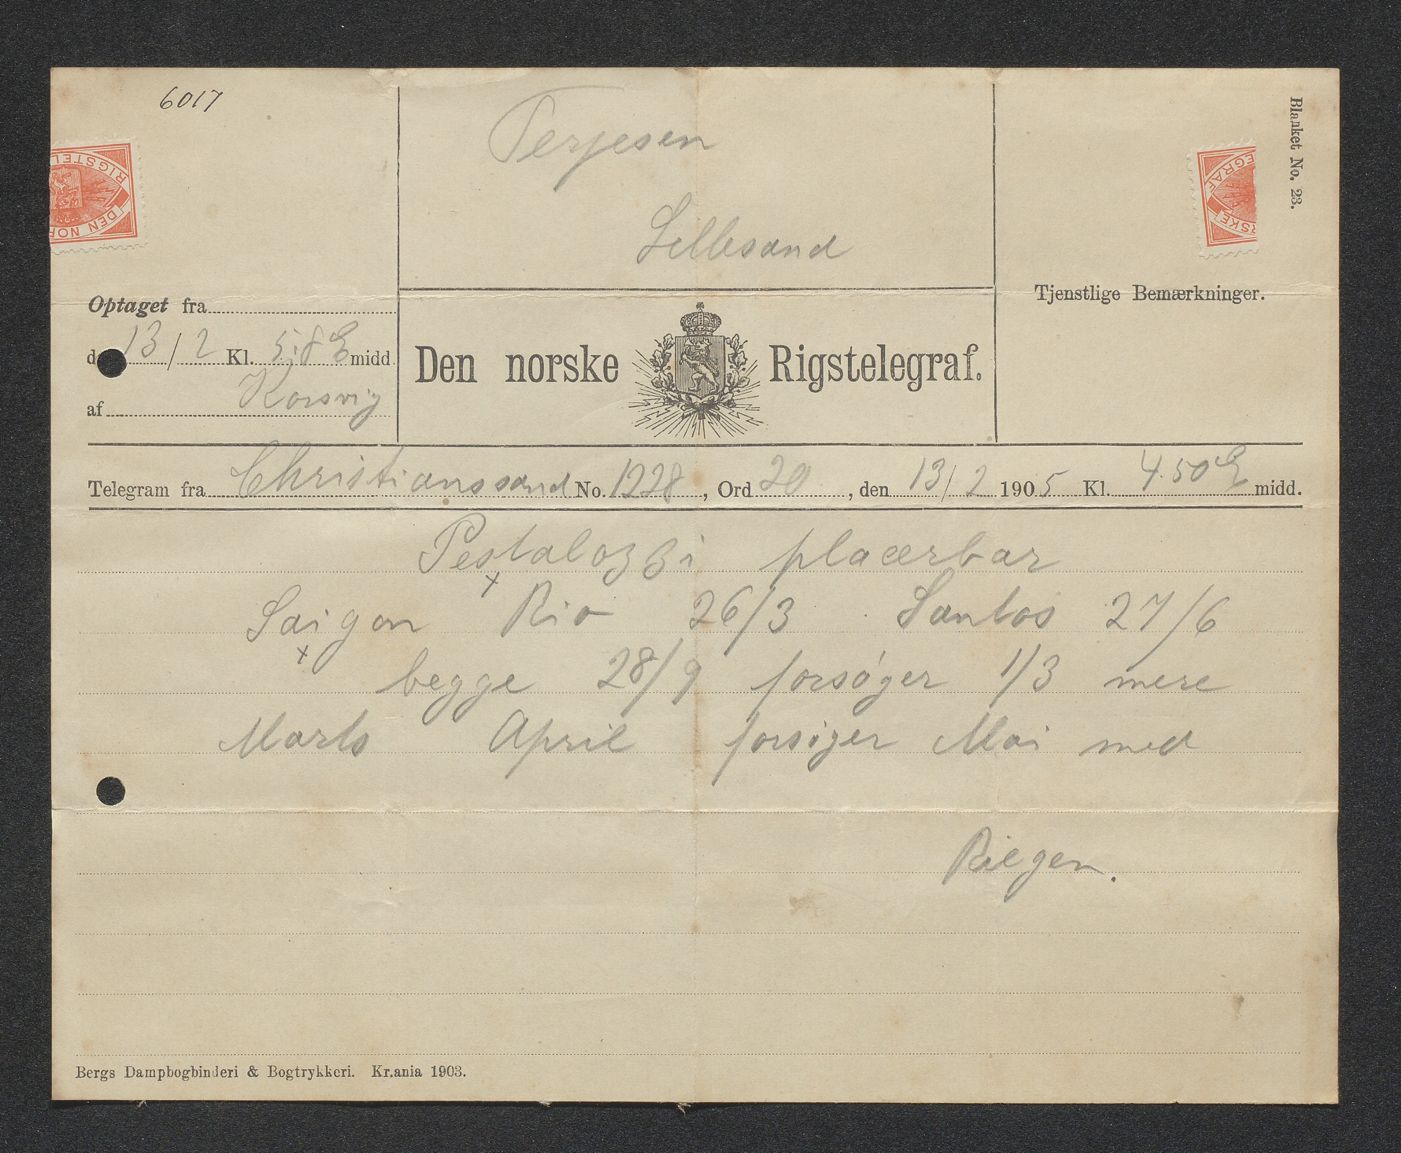 6017
Terjesen
Lillesand
Blanket No. 23.
RIGSTEL
DEN NOR
EGRAF
RSKE
Optaget fra
Tjenstlige Bemærkninger.
13/2 Kl. 5.8 E midd.
af Korsvig
Den norske Rigstelegraf.
Telegram fra Christianssand No. 1228, Ord 20, den 13/2 1905 Kl. 4.50 E midd.
Pestalozzi placerbar
Saigon Rio 26/3 Santos 27/6
begge 28/9 forsøger 1/3 mere
Marts April forsøger Mai med
Bergs Dampbogbinderi & Bogtrykkeri. Kr.ania 1903.